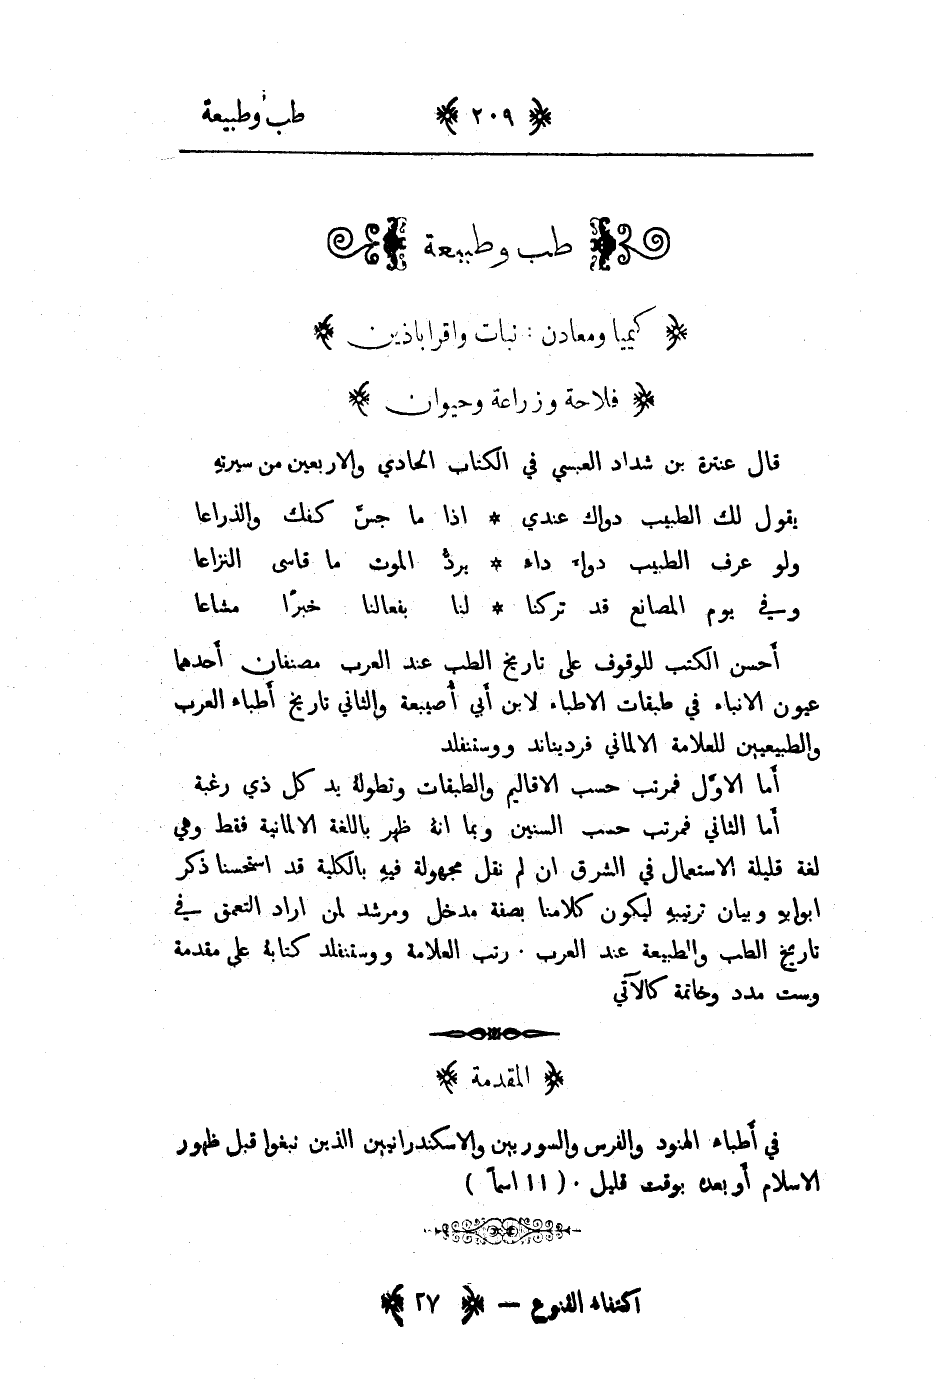 طب وطبيعة ٢٠٩
طب وطبيعة
كيميا ومعادن : نبات واقراباذين
فلاحة وزراعة وحيوان
قال عنترة بن شداد العبسي في الكتاب الحادي والاربعين من سيرتهِ
يقول لك الطبيب دواك عندي * اذا ما جسَّ كفك والذراعا
ولو عرف الطبيب دواء داء * يردُّ الموت ما قاسى النزاعا
وفي يوم المصانع قد تركنا * لنا بفعالنا خبرًا مشاعا
أحسن الكتب للوقوف على تاريخ الطب عند العرب مصنفان أحدهما
عيون الانباء في طبقات الاطباء لابن أبي أُصيبعة والثاني تاريخ أطباء العرب
والطبيعيين للعلامة الالماني فرديناند ووستنفلد
أما الاوّل فمرتب حسب الاقاليم والطبقات وتطولهُ يد كل ذي رغبة
أما الثاني فمرتب حسب السنين وبما انهُ ظهر باللغة الالمانية فقط وهي
لغة قليلة الاستعمال في الشرق ان لم نقل مجهولة فيهِ بالكلية قد استحسنا ذكر
ابوابهِ وبيان ترتيبهِ ليكون كلامنا بصفة مدخل ومرشد لمن اراد التعمق في
تاريخ الطب والطبيعة عند العرب ٠ رتب العلامة ووستنفلد كتابهُ على مقدمة
وست مدد وخاتمة كالآتي
المقدمة
في أطباء الهنود والفرس والسوريين والاسكندرانيين الذين نبغوا قبل ظهور
الاسلام أو بعده بوقت قليل ٠ ( ١١ اسماً )
اكتفاء القنوع — ٢٧